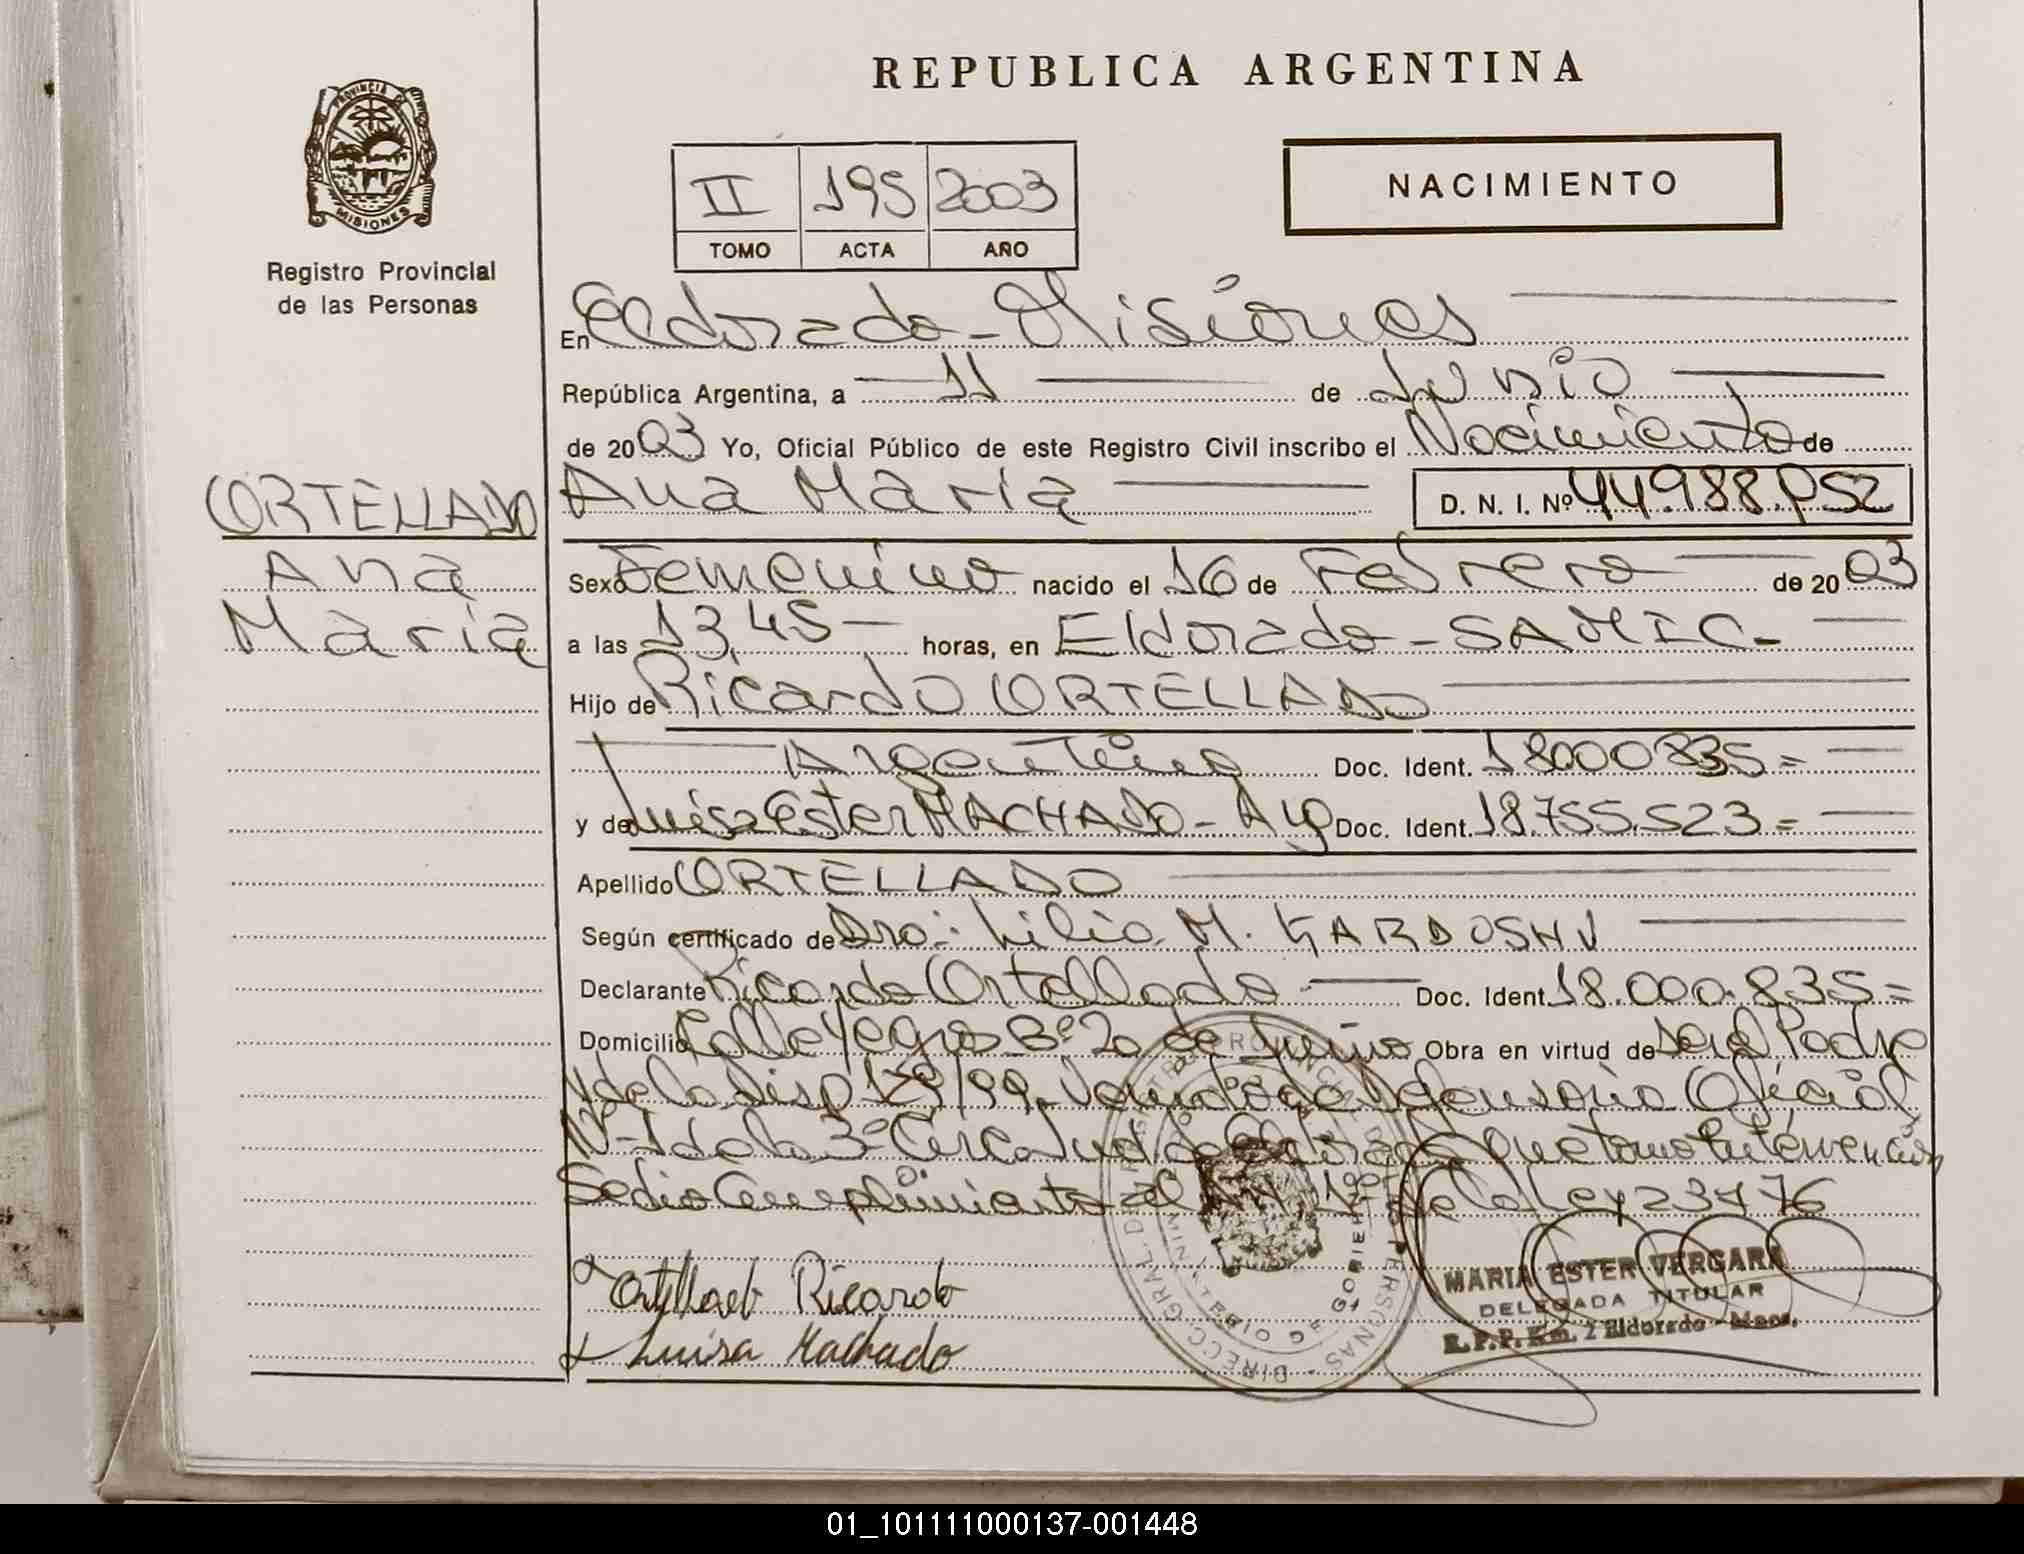 REPUBLICA ARGENTINA
PROVINCIA DE
MISIONES
Registro Provincial
de las Personas
II 195 2003
TOMO ACTA AÑO
NACIMIENTO
En Eldorado - Misiones
República Argentina, a 11 de Junio
de 2003 Yo, Oficial Público de este Registro Civil inscribo el Nacimiento de
CORTELLADO
Ana
Maria
Ana Maria D. N. I. Nº 44.988.052
Sexo Femenino nacido el 16 de Febrero de 2003
a las 13,45 horas, en Eldorado - SAMIC -
Hijo de Ricardo ORTELLADO
Argentino Doc. Ident. 18000835=
y de Luisa Ester MACHADO - Arg Doc. Ident. 18.755.523=
Apellido ORTELLADO
Según certificado de Dra: Lilia M. KARDOSHN
Declarante Ricardo Ortellado Doc. Ident. 18.000.835=
Domicilio Calle Yegros Bº 20 de Junio Obra en virtud de ser el Padre
y de la Disp /99 Defensoria Oficial
Nº 1 de la 3º Circ. Jud. de Eldorado que tomo intervención
Se dio cumplimiento al de la Ley 23776
Ortellado Ricardo
Luisa Machado
MARIA ESTER VERGARA
DELEGADA TITULAR
R.P.P. Km. 2 Eldorado - Mnes.
01_101111000137-001448